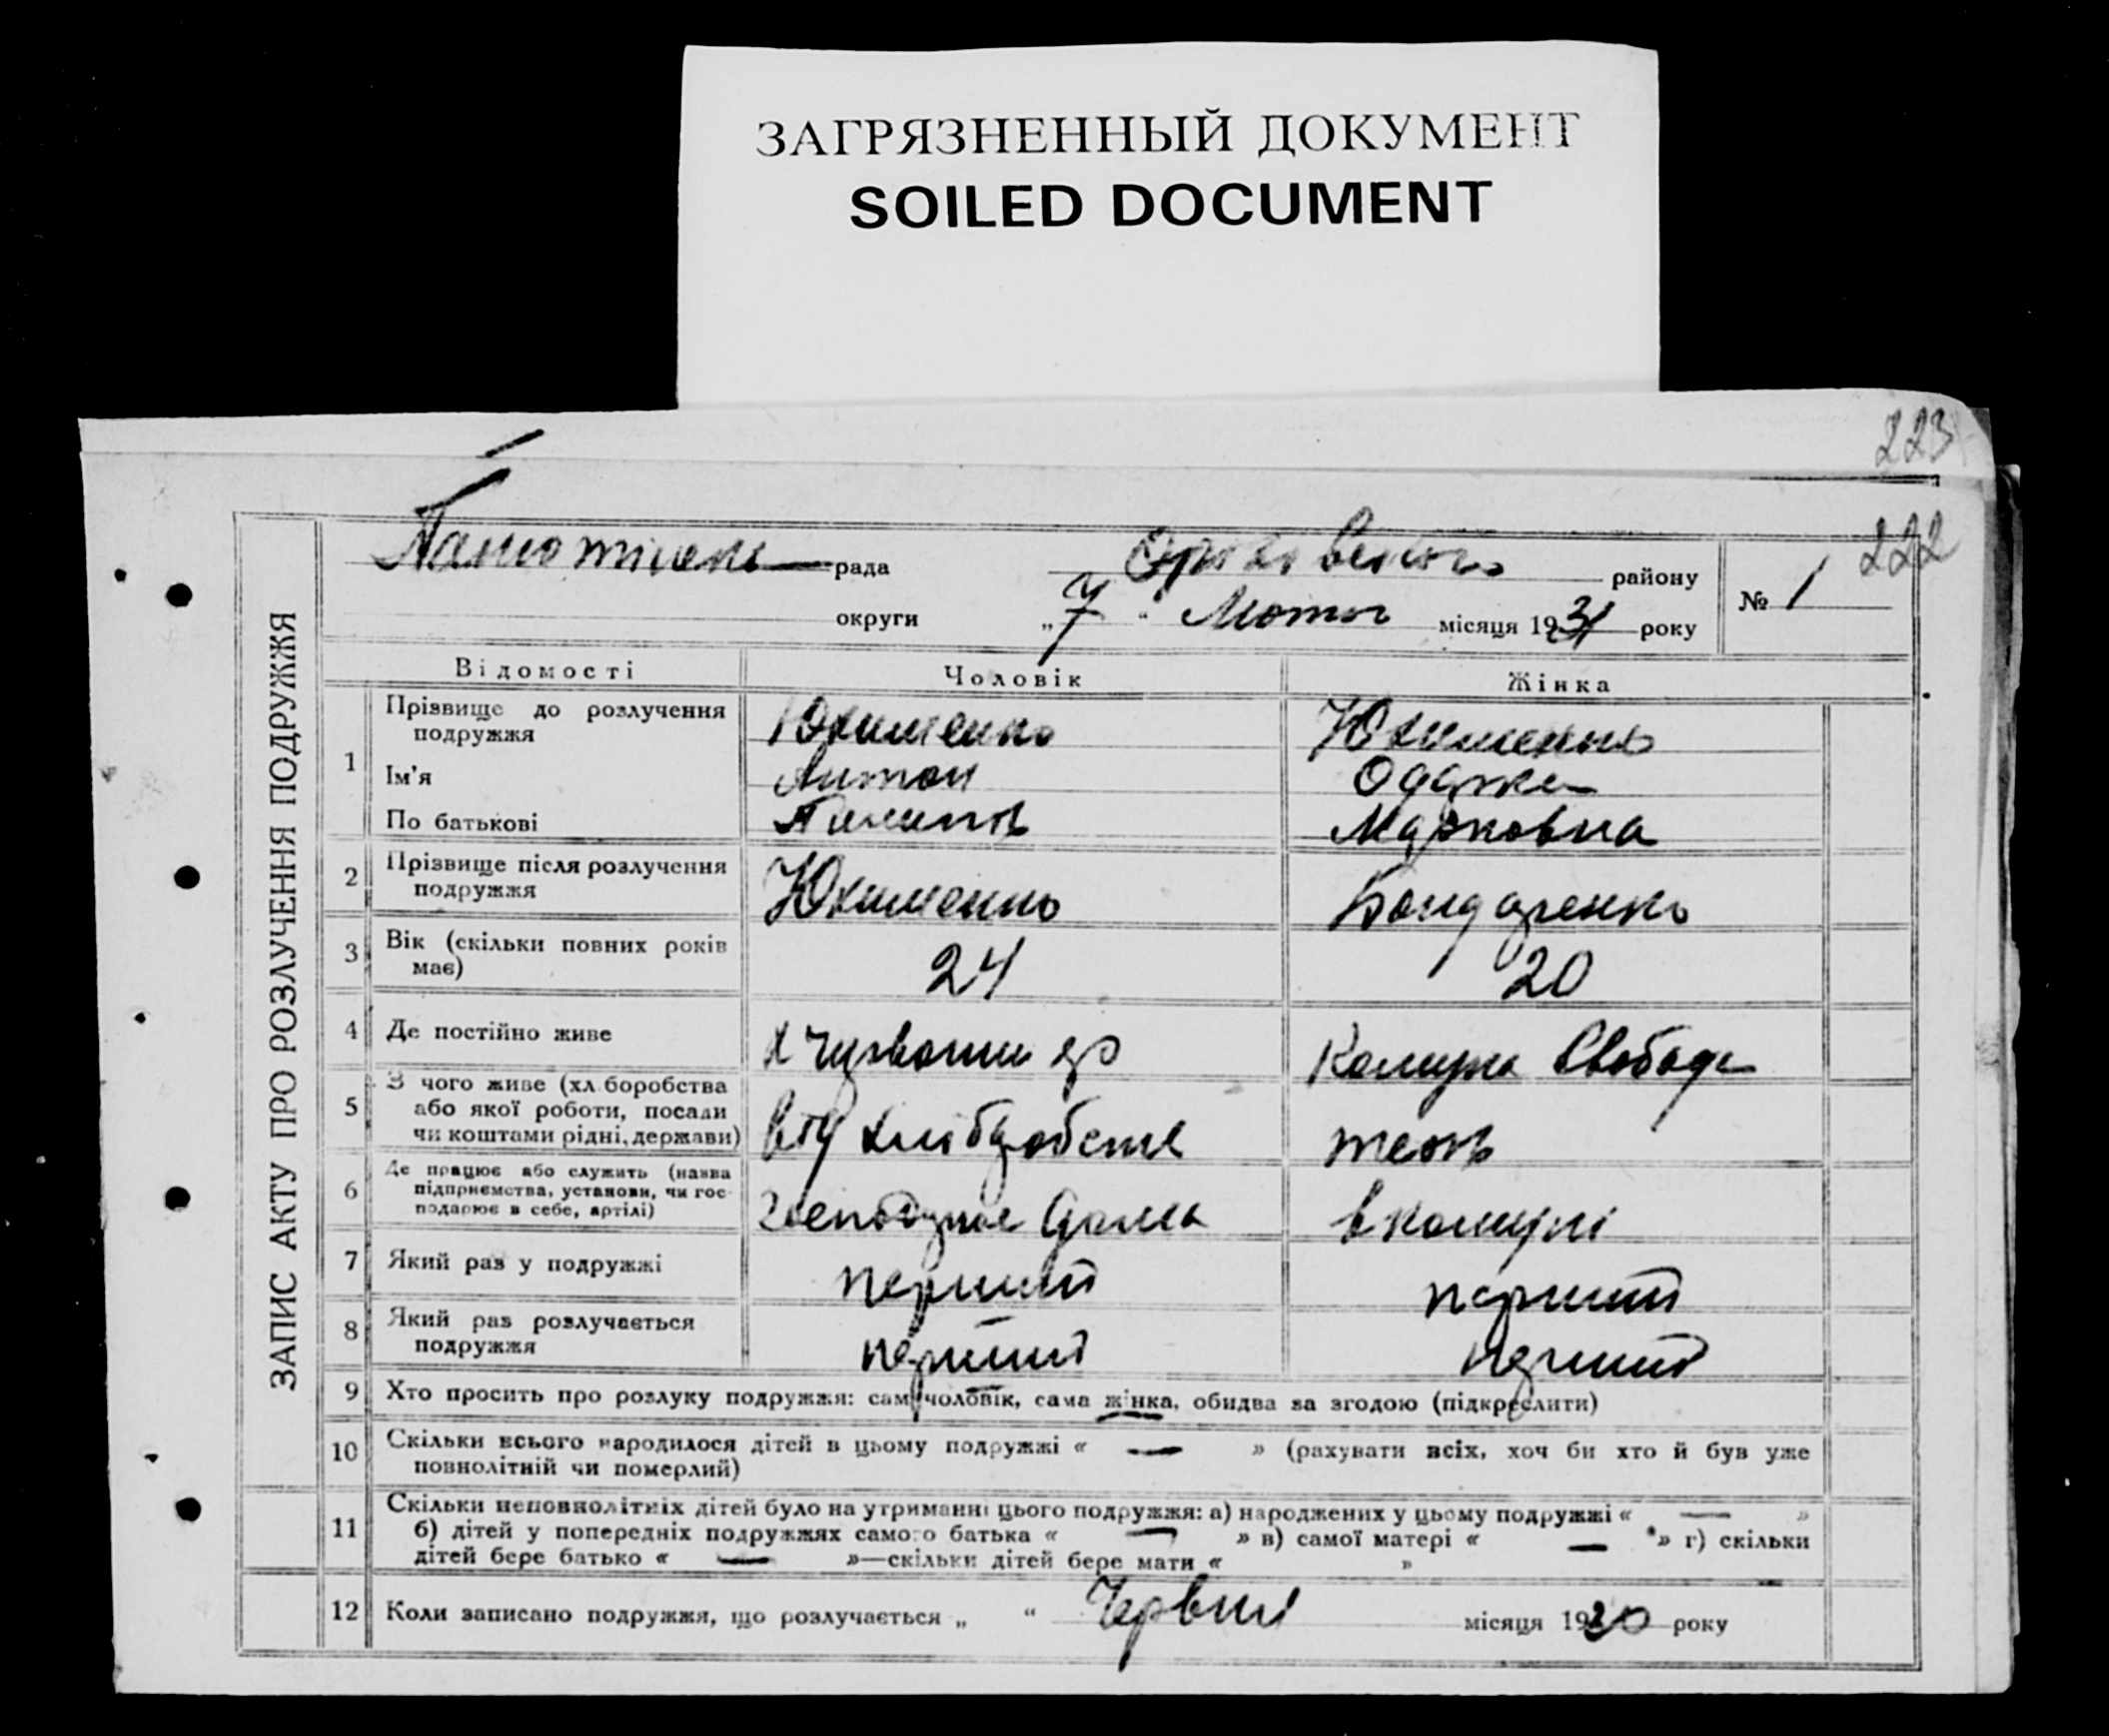 ЗАГРЯЗНЕННЫЙ ДОКУМЕНТ
SOILED DOCUMENT
223
222
ЗАПИС АКТУ ПРО РОЗЛУЧЕННЯ ПОДРУЖЖЯ
рада района району № 1
округи „7" Лютого місяця 1931 року
Відомості Чоловік Жінка
1 Прізвище до розлучення подружжя Юхименко Юхименко
Ім'я Антон Одарка
По батькові Пилипов Марковна
2 Прізвище після розлучення подружжя Юхименко Бондаренко
3 Вік (скільки повних років має) 24 20
4 Де постійно живе х Комуна Свобода
5 З чого живе (хліборобства або якої роботи, посади чи коштами рідні, держави) хліборобств теж
6 Де працює або служить (назва підприємства, установи, чи господарює в себе, артілі) дома в комуні
7 Який раз у подружжі перший перший
8 Який раз розлучається подружжя перший перший
9 Хто просить про розлуку подружжя: сам чоловік, сама жінка, обидва за згодою (підкреслити)
10 Скільки всього народилося дітей в цьому подружжі « — » (рахувати всіх, хоч би хто й був уже
повнолітній чи померлий)
11 Скільки неповнолітніх дітей було на утриманні цього подружжя: а) народжених у цьому подружжі « — »
б) дітей у попередніх подружжях самого батька « — » в) самої матері « — » г) скільки
дітей бере батько « — »—скільки дітей бере мати « »
12 Коли записано подружжя, що розлучається „ " Червні місяця 1920 року